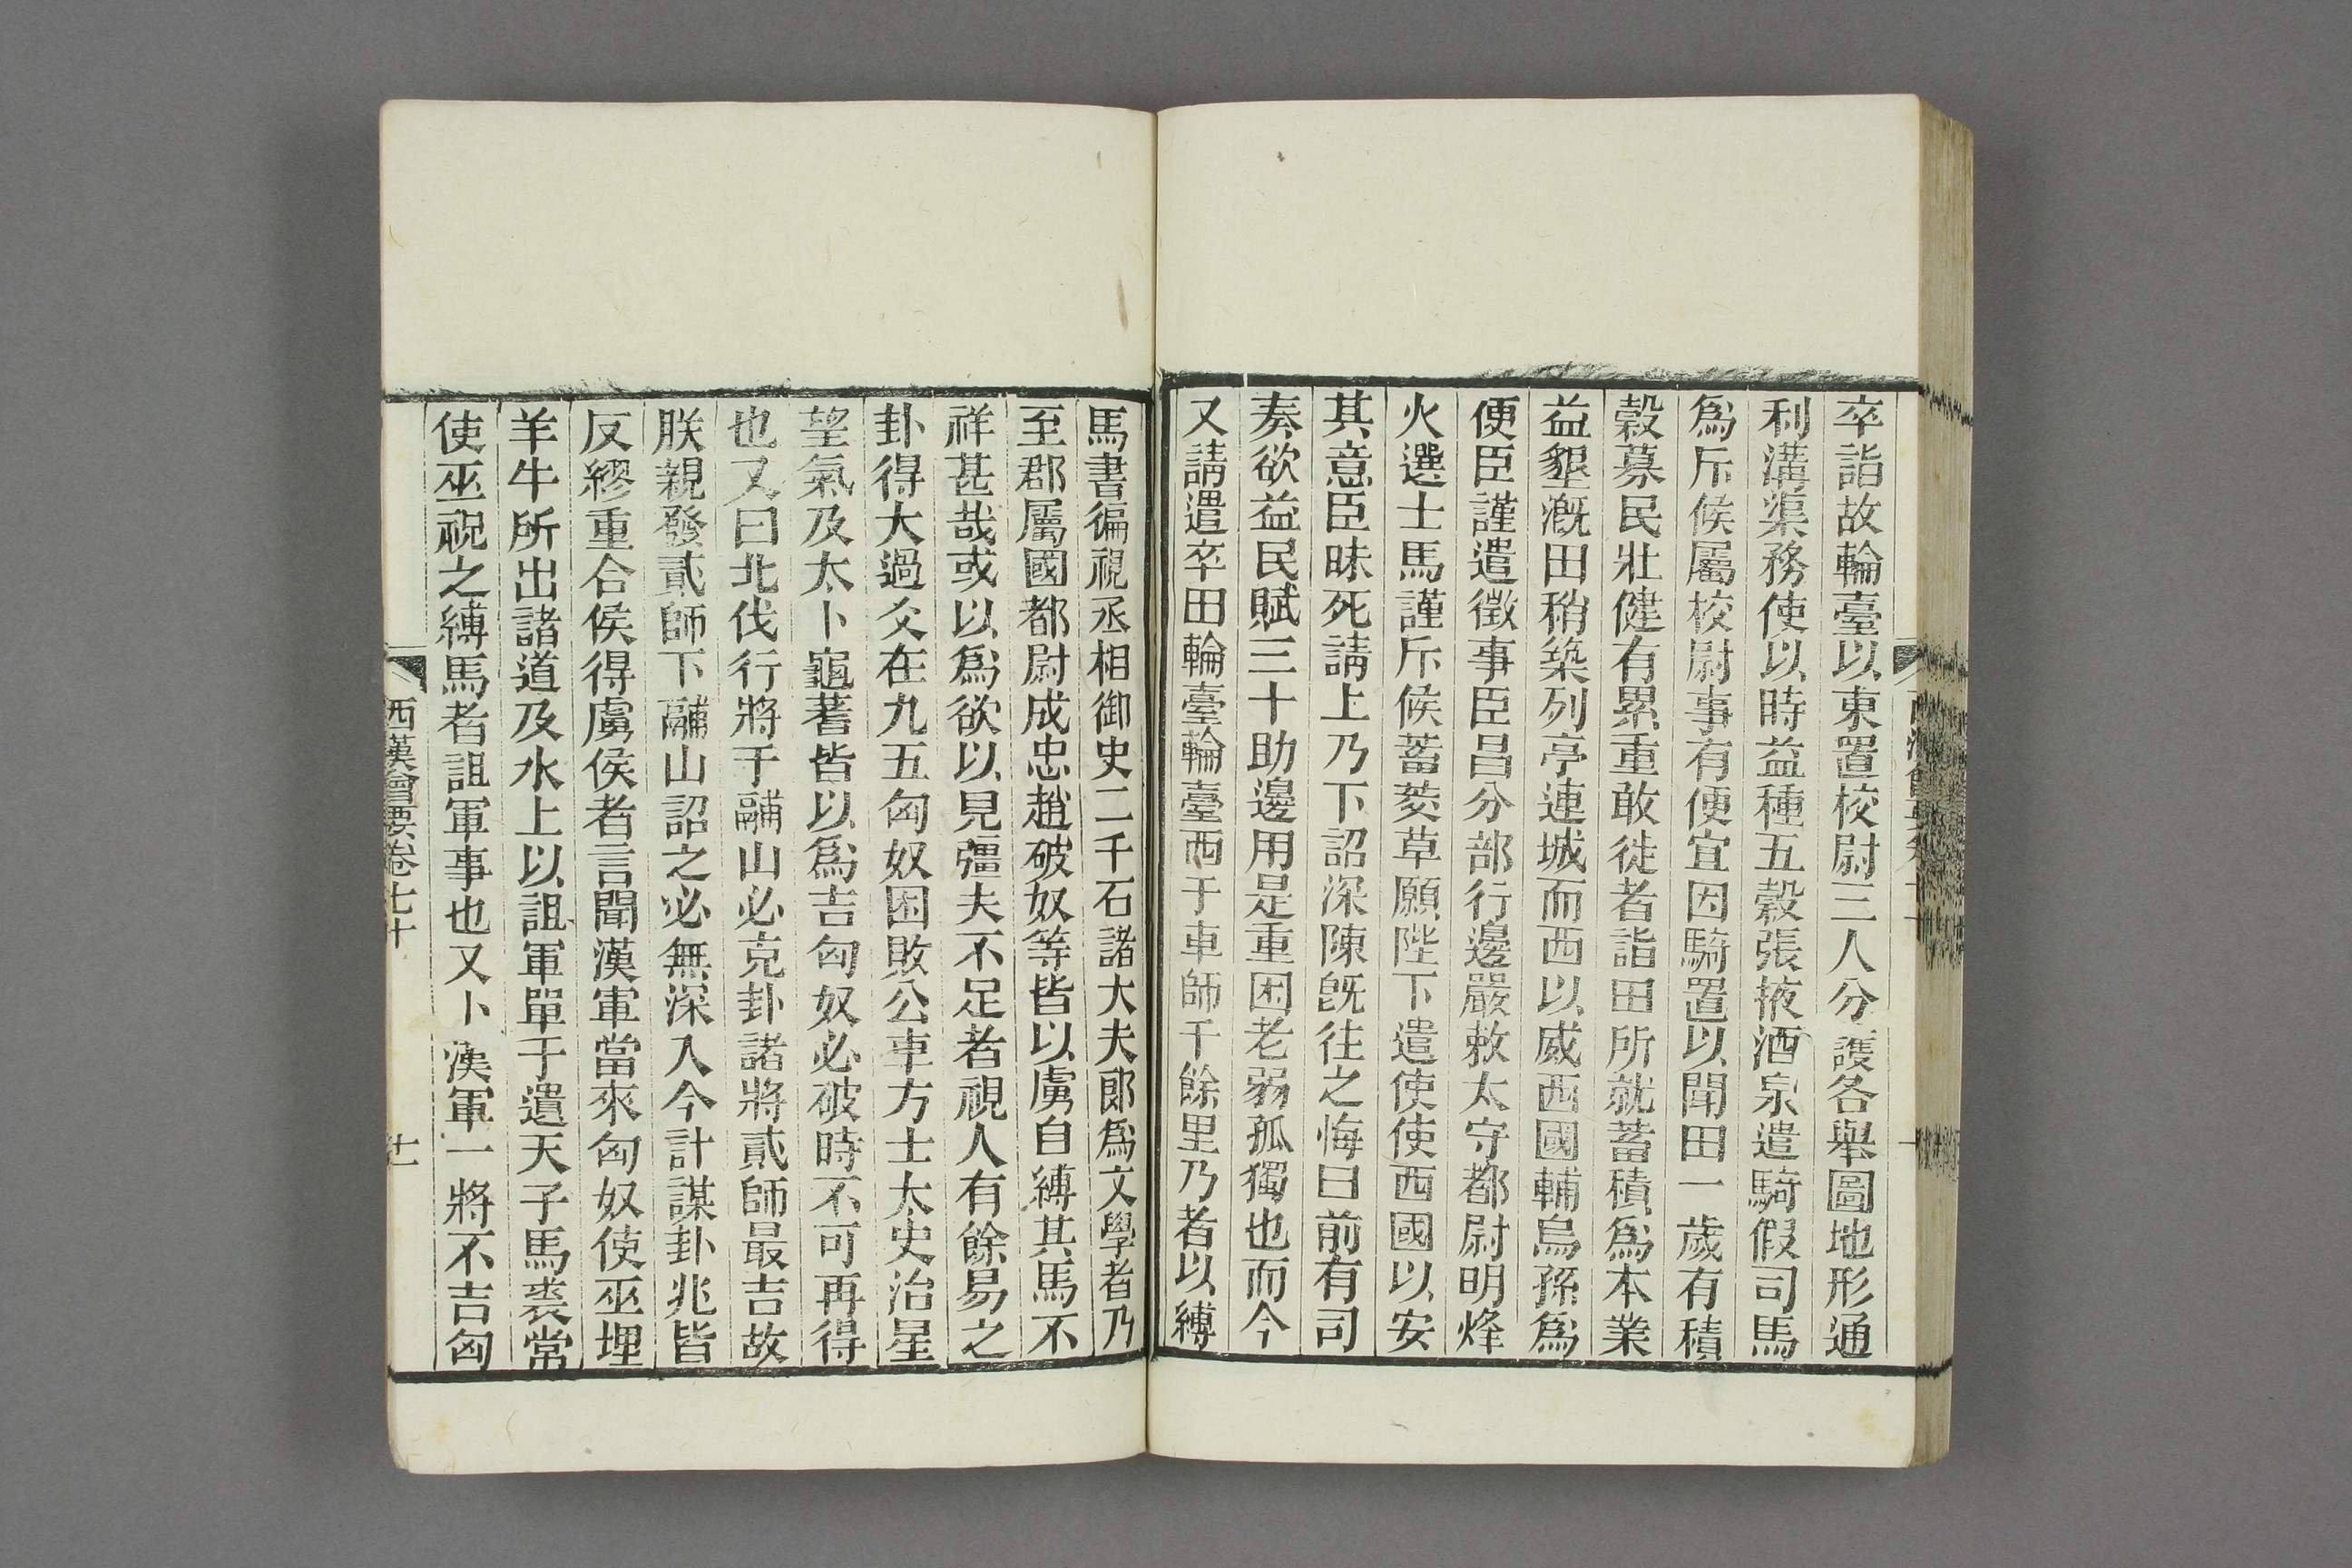 卒詣故輪臺以東置校尉三人分護各舉圖地形通
利溝渠務使以時益種五穀張掖酒泉遣騎假司馬
爲斥候屬校尉事有便宜因騎置以聞田一歲有積
穀募民壯健有累重敢徙者詣田所就蓄積爲本業
益墾漑田稍築列亭連城而西以威西國輔烏孫爲
便臣謹遣徵事臣昌分部行邊嚴敕太守都尉明烽
火選士馬謹斥候蓄茭草願陛下遣使使西國以安
其意臣昧死請上乃下詔深陳旣往之悔曰前有司
奏欲益民賦三十助邊用是重困老弱孤獨也而今
又請遣卒田輪臺輪臺西于車師千餘里乃者以縛
馬書徧視丞相御史二千石諸大夫郞爲文學者乃
至郡屬國都尉成忠趙破奴等皆以虜自縛其馬不
祥甚哉或以爲欲以見彊夫不足者視人有餘易之
卦得大過爻在九五匈奴困敗公車方士太史治星
望氣及太卜龜蓍皆以爲吉匈奴必破時不可再得
也又曰北伐行將于鬴山必克卦諸將貳師最吉故
朕親發貳師下鬴山詔之必無深入今計謀卦兆皆
反繆重合侯得虜侯者言聞漢軍當來匈奴使巫埋
羊牛所出諸道及水上以詛軍單于遺天子馬裘常
使巫祝之縛馬者詛軍事也又卜漢軍一將不吉匈
西漢會要卷七十
十一